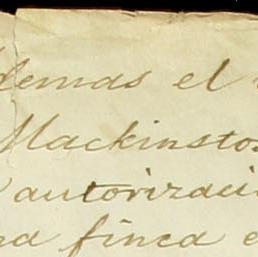 demas el
Mackinsto
autorizaci
na finca e